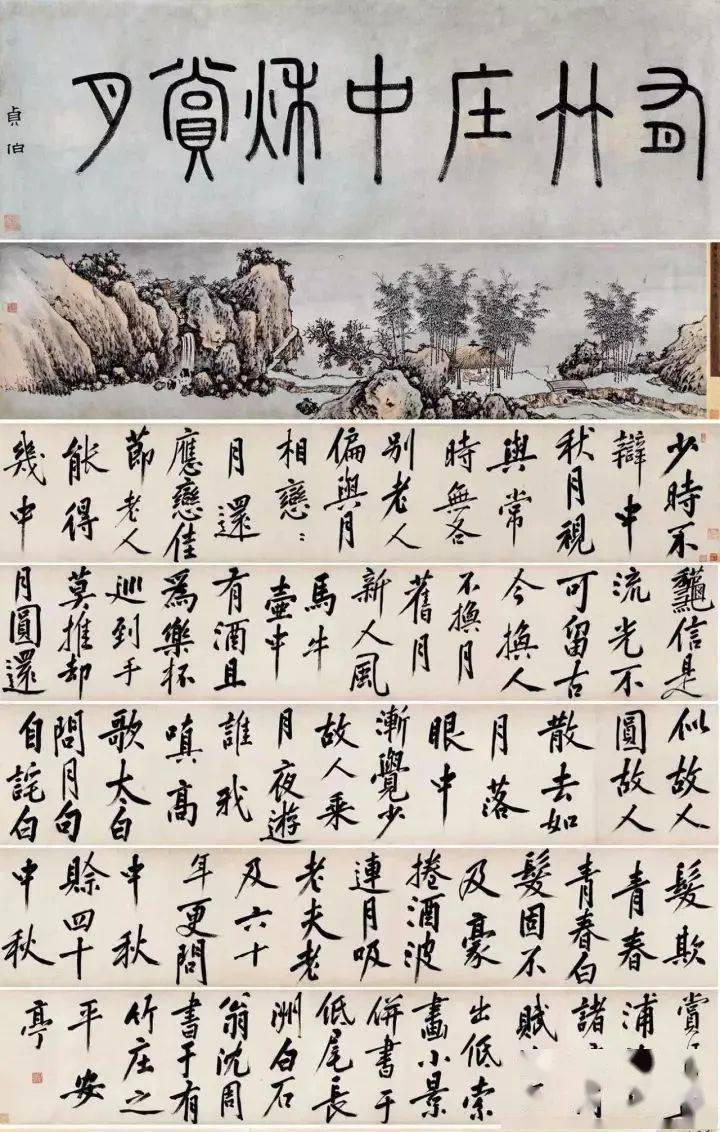 有竹庄中秌賞月
貞伯
少時不
辯中
秋月視
與常
時無各
别老人
偏與月
相戀〻
月還
應戀佳
節老人
能得
幾中
龝信是
流光不
可留古
今換人
不換月
舊月
新人風
馬牛
壺中
有酒且
為樂杯
巡到手
莫推却
月圓還
似故人
圓故人
散去如
月落
眼中
漸覺少
故人乘
月夜遊
誰我
嗔高
歌太白
問月句
自詫白
髮欺
青春
青春白
髮固不
及豪
捲酒波
連月吸
老夫老
及六十
年更問
中秋
賒四十
中秋
賞
浦
諸
賦
出低索
畫小景
併書于
低尾長
洲白石
翁沈周
書于有
竹庄之
平安
亭